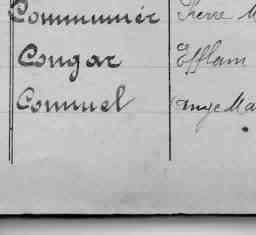 Communier Pierre M
Congar Efflam
Connuel Ange Ma